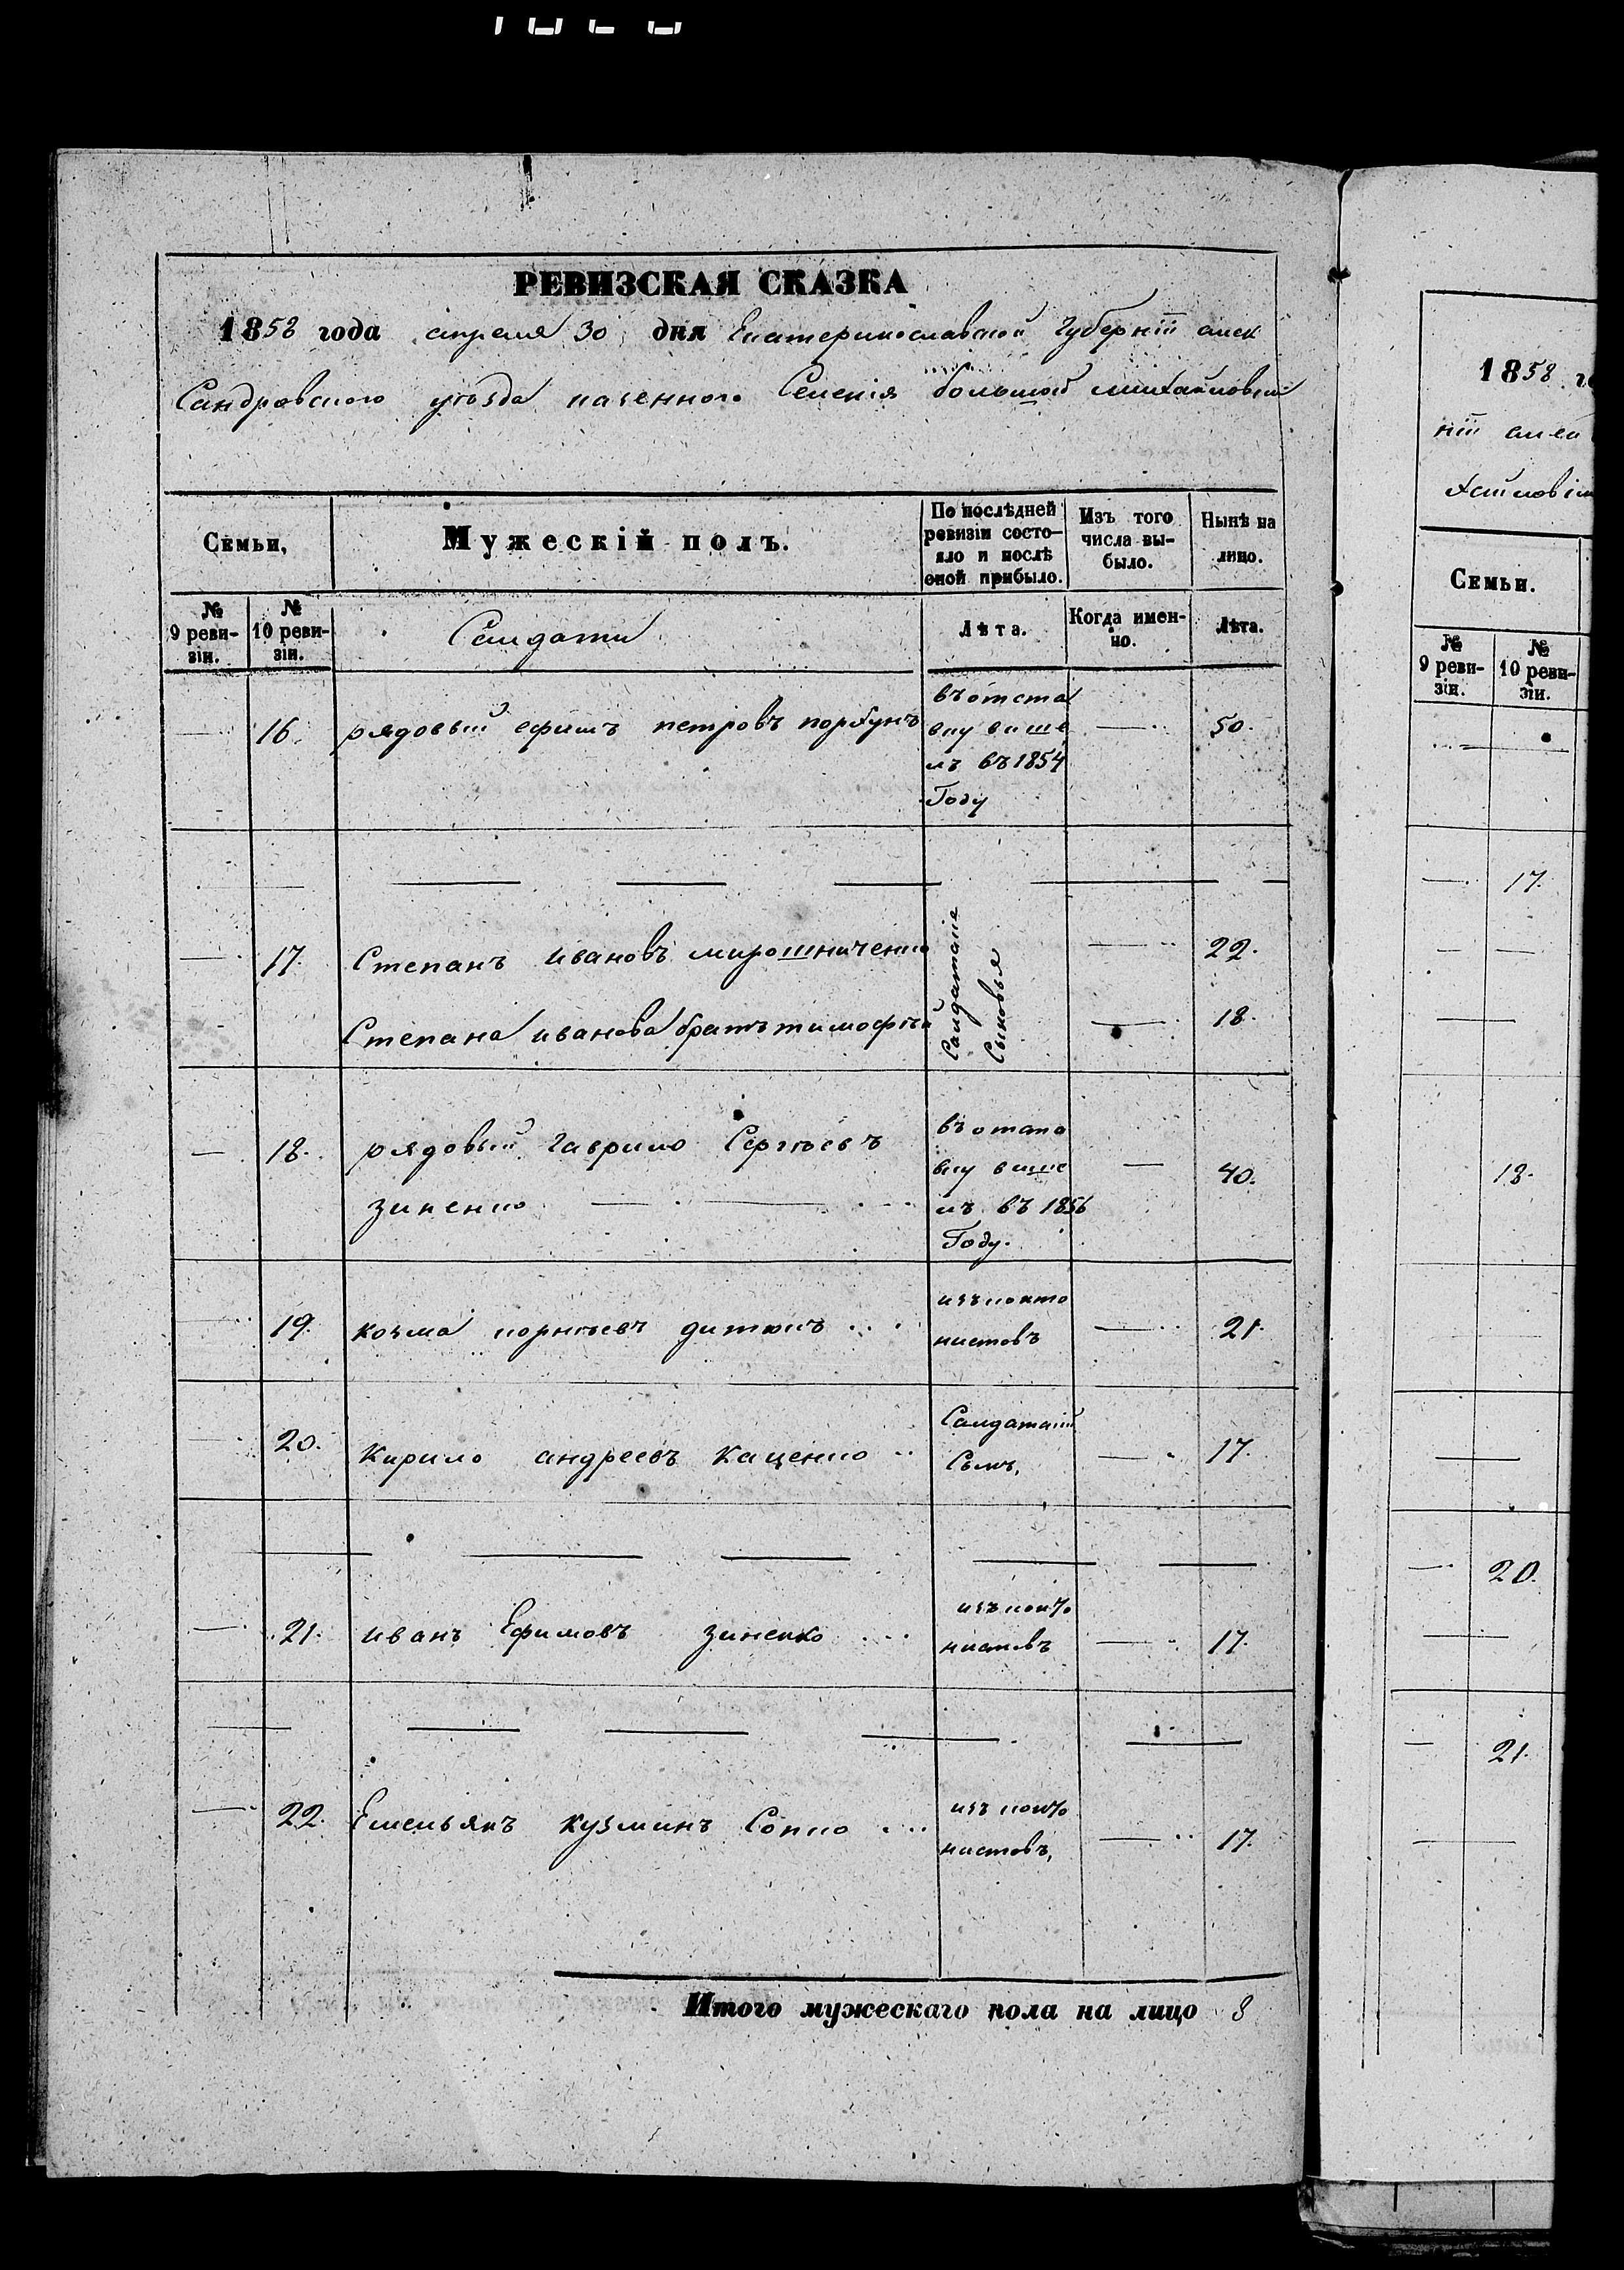 РЕВИЗСКАЯ СКАЗКА
1858 года апреля 30 дня Екатеринославской Губерніи алек
Сандровского уѣзда казенного Селенія большой михайловки
Семьи, Мужескій полъ. По послѣдней ревизіи состо-яло и послѣ оной прибыло. Изъ того числа вы-было. Нынѣ на лицо.
№ 9 реви-зіи. № 10 реви-зіи. Салдати Лѣта. Когда имен-но. Лѣта.
— 16. рядовый ефимъ петровъ — 50.
въ отста
вку више
лъ въ 1854
Году
— 17. Степанъ ивановъ мирошниченко — 22.
Степана иванова братъ тимофѣй — 18.
Салдатскіе
Сыновья
— 18. рядовый Гаврило Сергѣевъ — 40.
зиненко
въ отста
вку више
лъ въ 1856
Году.
19. козма корнѣевъ — 21.
изъ канто
нистовъ
20. Кирило андреевъ Каценко — 17.
Салдатскій
Сынъ,
— 21. иванъ Ефимовъ зиненко — 17.
изъ канто
нистовъ
— 22. Емельянъ кузминъ Сопко — 17.
изъ канто
нистовъ,
Итого мужескаго пола на лицо 8
1858
ніи алек
хайловки
Семьи.
№ 9 реви-зіи. № 10 реви-зіи.
— 17.
18.
— 20.
— 21.